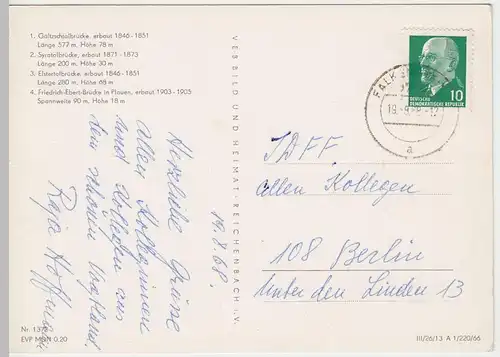 1. Göltzschtalbrücke, erbaut 1846-1851
Länge 577 m, Höhe 78 m
2. Syratalbrücke, erbaut 1871-1873
Länge 200 m, Höhe 30 m
3. Elstertalbrücke, erbaut 1846-1851
Länge 280 m, Höhe 68 m
4. Friedrich-Ebert-Brücke in Plauen, erbaut 1903-1905
Spannweite 90 m, Höhe 18 m
14.8.68.
Herzliche Grüße
allen Kolleginnen
und Kollegen aus
dem schönen Vogtland.
VEB BILD UND HEIMAT · REICHENBACH i. V.
10
DEUTSCHE
DEMOKRATISCHE REPUBLIK
a
IDFF
allen Kollegen
108 Berlin
Unter den Linden 13
EVP MDN 0.20
III/26/13 A 1/220/66